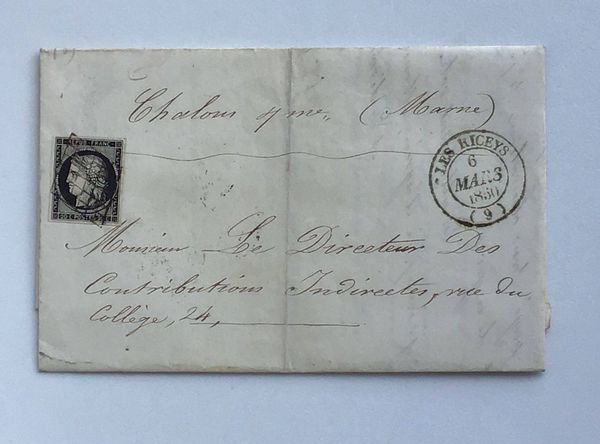 Chalons s/ mne (Marne)
REPUB. FRANC.
20 C POSTES 20 C
LES RICEYS
6
MARS
1850
(9)
Monsieur Le Directeur Des
Contributions Indirectes, rue du
Collège, 24,